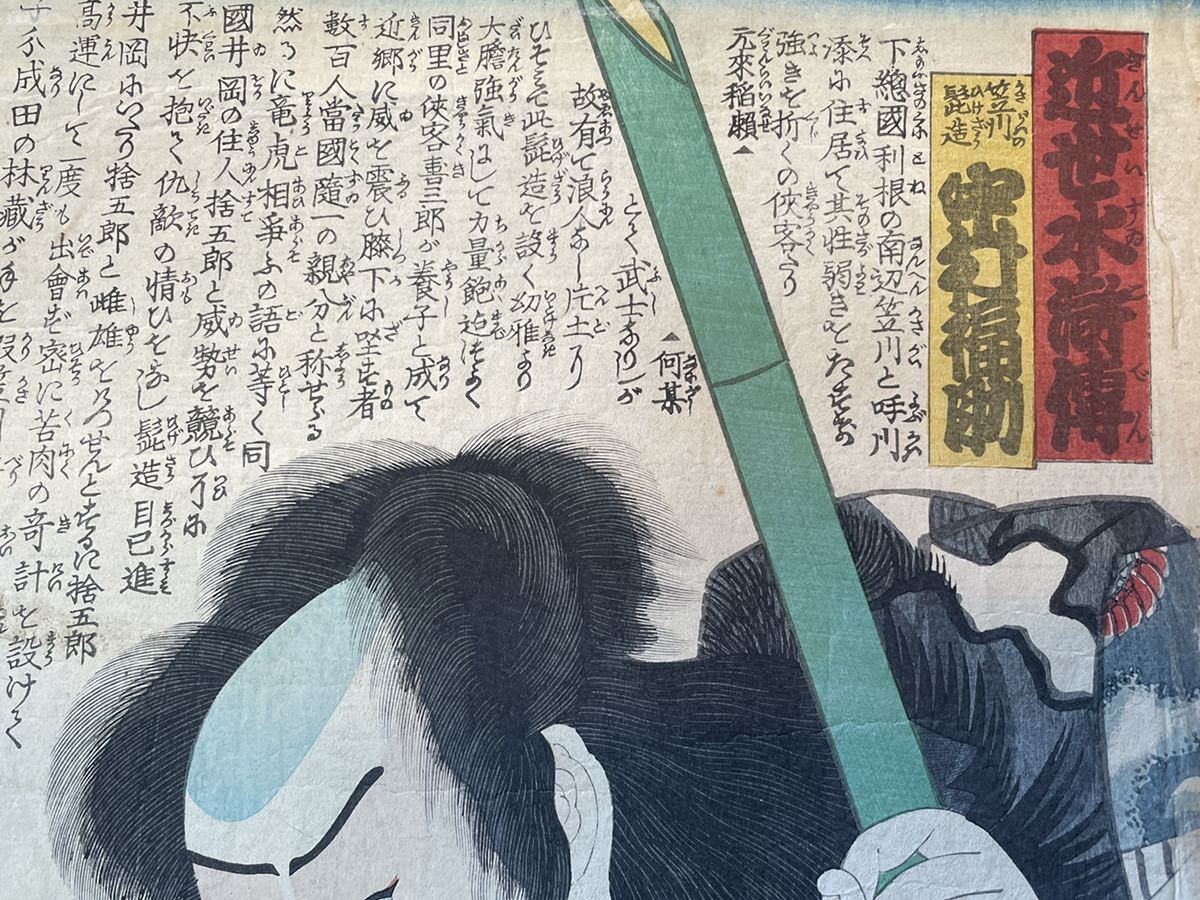 近世水滸傳
きんせいすゐこでん
笠川の
髭造
ひげざう
中村福助
下總國利根の南辺笠川と呼川
添に住居て其性弱きをたすけ
強きを折くの侠客なり
元來稲瀬▲
▲何某
とく武士なりしが
故有て浪人なし片土り
ひそミて此髭造を設く幼雅より
大膽強氣にして力量飽迠つよく
同里の侠客喜三郎が養子と成て
近郷に威を震ひ膝下に坐す者
數百人當國隨一の親分と称せらる
然るに竜虎相爭ふの語に等く同
國井岡の住人捨五郎と威勢を競ひ
不快を抱て仇敵の情ひをなし髭造自己進
井岡にいたり捨五郎と雌雄をけつせんとするに捨五郎
高運にして一度も出會ず密に苦肉の奇計を設けて
成田の林藏が